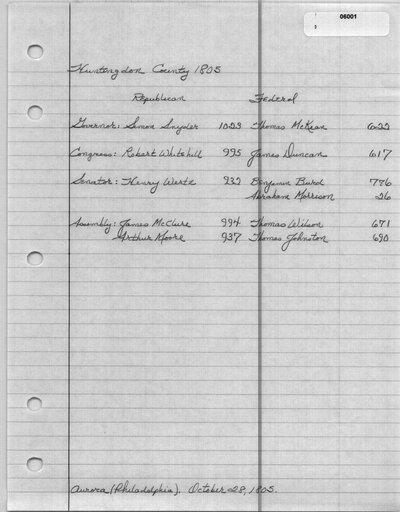 06001
Huntingdon County 1805
Republican Federal
Governor: Simon Snyder 1023 Thomas McKean 622
Congress: Robert Whitehill 995 James Duncan 617
Senator: Henry Wertz 932 Benjamin Burd 776
Abraham Morrison 26
Assembly: James McClure 994 Thomas Wilson 671
Arthur Moore 937 Thomas Johnston 690
Aurora (Philadelphia). October 28, 1805.